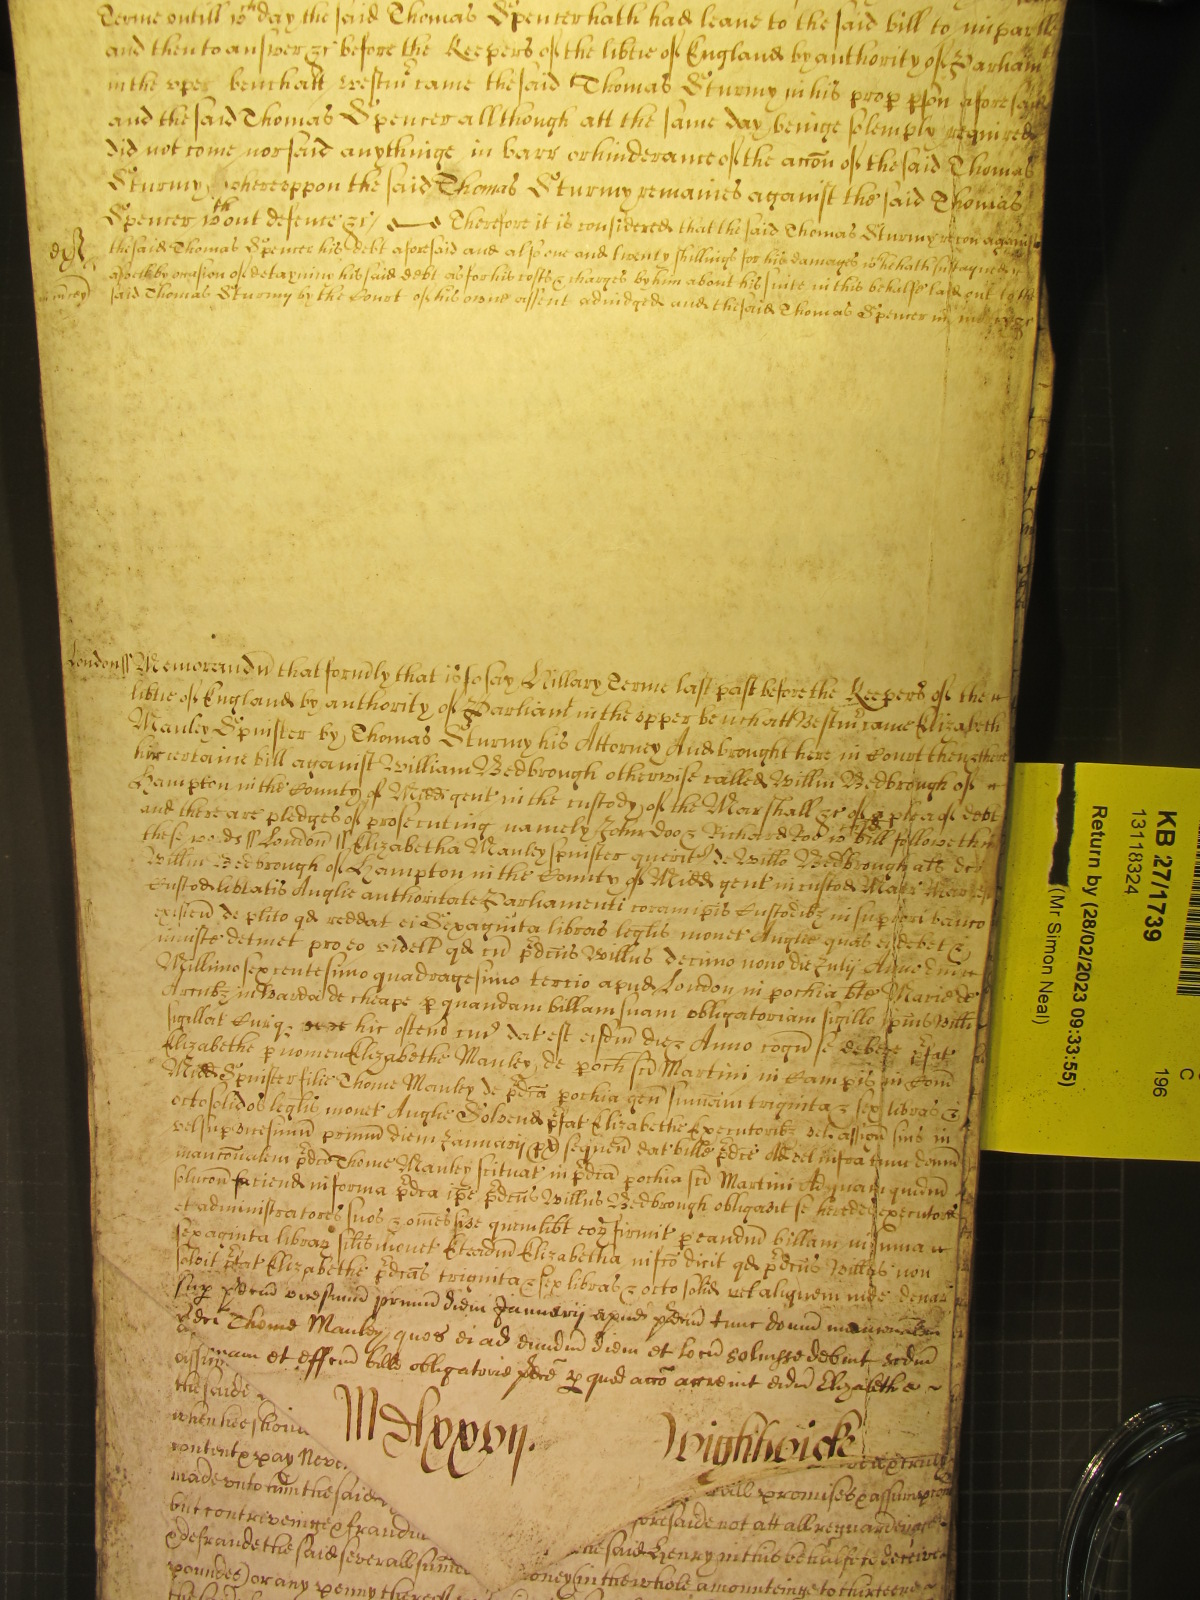 Terme untill wch day the said Thomas Spencer hath had leave to the said bill to imparlle
and then to answer &c before the Keepers of the libtie of England by authority of Parliamt
in the upper bench att Westmr came the said Thomas Sturmy in his prop pson aforesaid
and the said Thomas Spencer allthough att the same day beinge solemply required
did not come nor said anythinge in barr or hinderance of the accon of the said Thomas
Sturmy whereuppon the said Thomas Sturmy remaines against the said Thomas
Spencer wthout defence &c Therefore it is considered that the said Thomas Sturmy recou against
the said Thomas Spencer his debt aforesaid and also one and twenty shillings for his damages wch he hath sustayned
aswell by occasion of detayning his said debt as for his costs & charges by him about his suite in this behalfe laid out to the
said Thomas Sturmy by the Court of his owne assent adiudged and the said Thomas Spencer in &c
London ss Memorandu that formly that is to say Hillary Terme last past before the Keepers of the
libtie of England by authority of Parliamt in the upper bench att Westmr came Elizabeth
Manley Spinster by Thomas Sturmy his Attorney And brought here in Court then & there
her certaine bill against William Bedbrough otherwise called Willm Bedbrough of
Hampton in the County of Midd gent in the custody of the Marshall &c of a plea of debt
and there are pledges of prosecuting namely John Doo & Richard Roe wch bill followeth in
these words ss London ss Elizabetha Manley spinster querit de Willo Bedbrough als dco
Willm Bedbrough of Hampton in the County of Midd gent in custod Marr
Custod libtatis Anglie authoritate Parliamenti coram ipis Custodibz in supiori banco
existen de plito qd reddat ei Sexaginta libras leglis monet Anglie quas ei debet &
iniuste detinet pro eo videlt qd cu pdcus Willus decimo nono die Julij Anno dni
Millimo sexcentesimo quadragesimo tercio apud London in pochia bte Marie de
Arcubz in Warda de cheape p quandam billam suam obligatoriam sigillo ipius Willi
sigillat Curiqz hic ostens cui dat est eisdm die & Anno cogn se debere pfat
Elizabethe p nomen Elizabethe Manley de poch sci Martini in Campis in Com
Midd Spinster filie Thome Manley de pdca pochia gen summam triginta & sex libras &
octo solidos leglis monet Anglie Solvend pfat Elizabethe Executoribz vel assign suis in
vel sup vicesimu primu diem Januarij sequen dat bille pdce infra tunc domu
mancionalem pdci Thome Manley scituat in pdca pochia sci Martini Ad quam quidm
solucon faciend in forma pdca ipe pdcus Willus Bedbrough obligavit se heredes executores
et administratores suos & omes sive quemlibt eoz firmit p eandm billam in suma
sexaginta libraz silis monet Et eadm Elizabetha in fco dicit qd pdcus Willus non
solvit pfat Elizabethe pdcas triginta & sex libras & octo solid vel aliquem inde denar
sup pdcm vicesimu primu diem Januarij apud pdcm tunc domu mancionalem
pdci Thome Manley quos ei ad eundm diem et locu solvisse debuit scdm
et effcm bille obligatorie pdce p quod acco accrevit eidm Elizabethe
the saide
when hee should
content & pay Neve
made unto him the saide
but contrivinge & fraudu
& defraude the said severall summe
pounds) or any penny thereof
M dlxxvij.
Wightwicke
will & promises & assumpcon
foresaide not att all regardinge
the said Henry in this behalfe to deceive
money (in the whole amountinge to thirteene
KB 27/1739
13118324
Return by (28/02/2023 09:33:55)
(Mr Simon Neal)
C
196